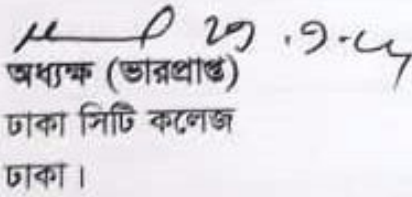 অধ্যক্ষ (ভারপ্রাপ্ত)
ঢাকা সিটি কলেজ
ঢাকা।